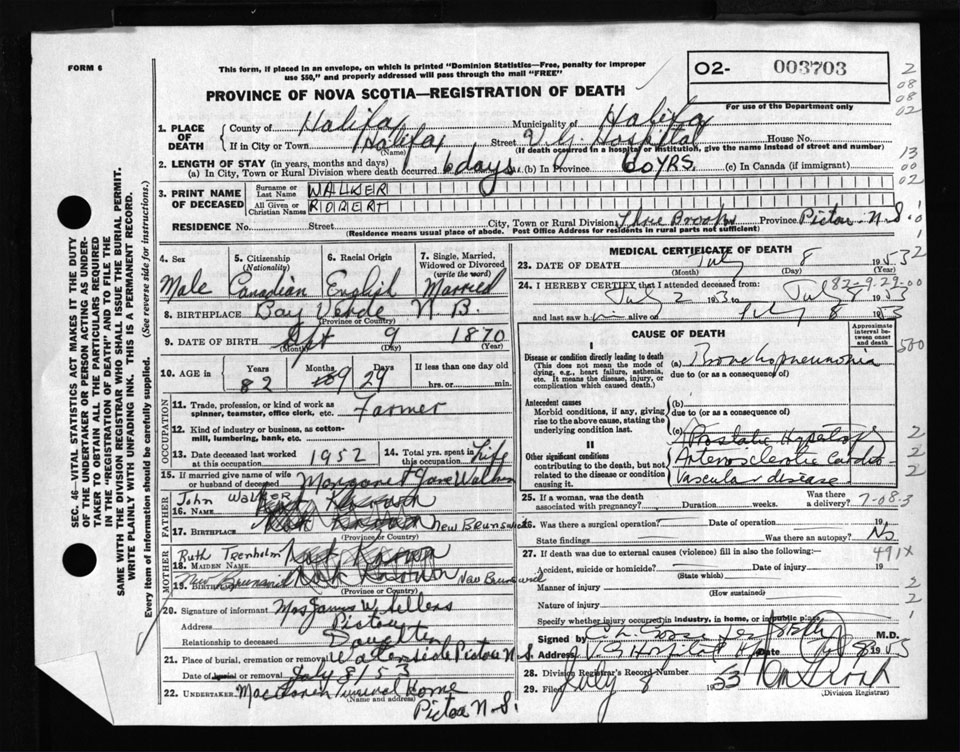 FORM 6
This form, if placed in an envelope, on which is printed "Dominion Statistics—Free, penalty for improper
use $50," and properly addressed will pass through the mail "FREE"
O2- 003703
PROVINCE OF NOVA SCOTIA—REGISTRATION OF DEATH
For use of the Department only
2
08
08
02
13
00
02
1. PLACE OF DEATH
County of Halifax Municipality of Halifax
If in City or Town Halifax Street V.G. Hospital House No.
(Name) (If death occurred in a hospital or institution, give the name instead of street and number)
2. LENGTH OF STAY (in years, months and days)
(a) In City, Town or Rural Division where death occurred 6 days (b) In Province 60 YRS. (c) In Canada (if immigrant)
3. PRINT NAME OF DECEASED
Surname or Last Name WALKER
All Given or Christian Names ROBERT
RESIDENCE No. Street City, Town or Rural Division Three Brooks Province Pictou N.S.
(Residence means usual place of abode. Post Office Address for residents in rural parts not sufficient)
4. Sex
Male
5. Citizenship (Nationality)
Canadian
6. Racial Origin
English
7. Single, Married, Widowed or Divorced (write the word)
Married
8. BIRTHPLACE Bay Verde N.B.
(Province or Country)
9. DATE OF BIRTH Sept 9 1870
(Month) (Day) (Year)
10. AGE in Years Months Days If less than one day old
82 9 29 hrs. or min.
OCCUPATION
11. Trade, profession, or kind of work as
spinner, teamster, office clerk, etc. Farmer
12. Kind of industry or business, as cotton-
mill, lumbering, bank, etc.
13. Date deceased last worked at this occupation 1952
14. Total yrs. spent in this occupation Life
15. If married give name of wife or husband of deceased Margaret Jane Walker
FATHER
John Walker
16. Name Not Known
17. Birthplace Not Known New Brunswick
(Province or Country)
MOTHER
Ruth Trenholm
18. MAIDEN NAME Not Known
19. Birthplace New Brunswick Not Known New Brunswick
(Province or Country)
20. Signature of informant Mrs James W. Sellers
Address Pictou
Relationship to deceased Daughter
21. Place of burial, cremation or removal Waterside Pictou N.S.
Date of burial or removal July 8/53
22. UNDERTAKER Funeral Home
(Name and address)
Pictou N.S.
MEDICAL CERTIFICATE OF DEATH
23. DATE OF DEATH July 8 1953
(Month) (Day) (Year)
82-9-29-00
24. I HEREBY CERTIFY that I attended deceased from:
July 2 1953 to July 8 1953
and last saw him alive on July 8 1953
CAUSE OF DEATH
Approximate interval between onset and death
I
Disease or condition directly leading to death
(This does not mean the mode of
dying, e.g., heart failure, asthenia,
etc. It means the disease, injury, or
complication which caused death.)
(a) Bronchopneumonia
due to (or as a consequence of)
Antecedent causes
Morbid conditions, if any, giving
rise to the above cause, stating the
underlying condition last.
(b)
due to (or as a consequence of)
(c)
II
Other significant conditions
contributing to the death, but not
related to the disease or condition
causing it.
Prostatic Hypertrophy
Arteriosclerotic Cardio
Vascular disease
25. If a woman, was the death associated with pregnancy? Duration weeks. Was there a delivery?
7-08-3
26. Was there a surgical operation? Date of operation 19
State findings Was there an autopsy? No
27. If death was due to external causes (violence) fill in also the following:—
491X
Accident, suicide or homicide? Date of injury 19
(State which)
Manner of injury
(How sustained)
Nature of injury
Specify whether injury occurred in industry, in home, or in public place
Signed by M.D.
Address V.G. Hospital July 8 1953
28. Division Registrar's Record Number
29. Filed July 8 1953
(Division Registrar)
SEC. 46—VITAL STATISTICS ACT MAKES IT THE DUTY
OF THE UNDERTAKER OR PERSON ACTING AS UNDER-
TAKER TO OBTAIN ALL THE PARTICULARS REQUIRED
IN THE "REGISTRATION OF DEATH" AND TO FILE THE
SAME WITH THE DIVISION REGISTRAR WHO SHALL ISSUE THE BURIAL PERMIT.
WRITE PLAINLY WITH UNFADING INK. THIS IS A PERMANENT RECORD.
Every item of information should be carefully supplied. (See reverse side for instructions.)